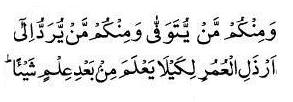 وَمِنْكُمْ مَّنْ يُّتَوَفّٰى وَمِنْكُمْ مَّنْ يُّرَدُّ اِلٰٓى
اَرْذَلِ الْعُمُرِ لِكَيْلَا يَعْلَمَ مِنْۢ بَعْدِ عِلْمٍ شَيْـًٔا ؕ